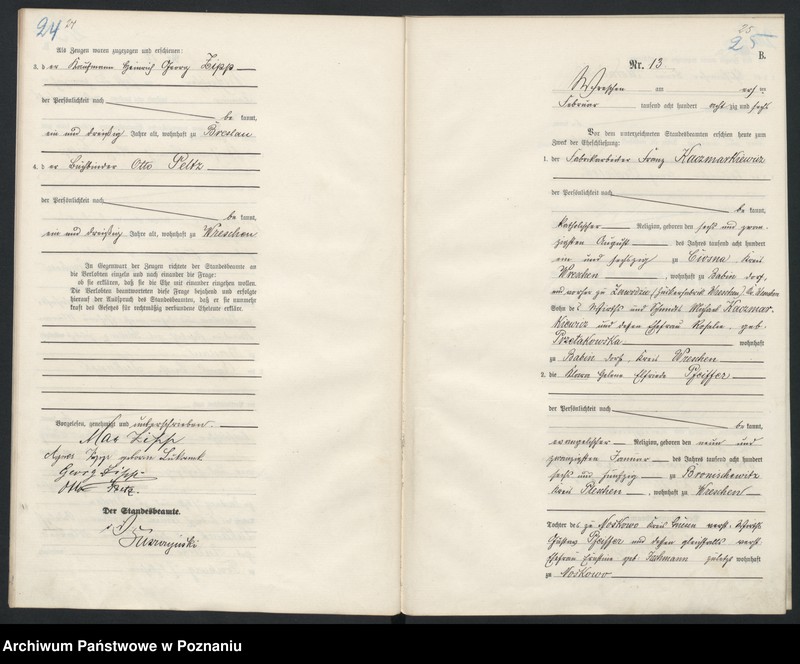 24 21
Als Zeugen waren zugezogen und erschienen:
3. der Kaufmann Heinrich Georg Zipp
der Persönlichkeit nach
bekannt,
ein und dreißig Jahre alt, wohnhaft zu Breslau
4. der Buchbinder Otto Peltz
der Persönlichkeit nach
bekannt,
ein und dreißig Jahre alt, wohnhaft zu Wreschen
In Gegenwart der Zeugen richtete der Standesbeamte an
die Verlobten einzeln und nach einander die Frage:
ob sie erklären, daß sie die Ehe mit einander eingehen wollen.
Die Verlobten beantworteten diese Frage bejahend und erfolgte
hierauf der Ausspruch des Standesbeamten, daß er sie nunmehr
kraft des Gesetzes für rechtmäßig verbundene Eheleute erkläre.
Vorgelesen, genehmigt und unterschrieben.
Max Zipp
Agnes Zipp geborene
Georg Zipp
Otto Peltz.
Der Standesbeamte.
25
25
B.
Nr. 13
Wreschen am
Februar tausend acht hundert achtzig und sechs
Vor dem unterzeichneten Standesbeamten erschienen heute zum
Zweck der Eheschließung:
1. der Fabrikarbeiter Franz Kaczmarkiewicz
der Persönlichkeit nach
bekannt,
katholischer Religion, geboren den sechs und zwan-
zigsten August des Jahres tausend acht hundert
ein und sechszig zu Kreis
Wreschen, wohnhaft zu Babin dorf,
und vorher zu (Zuckerfabrik Wreschen)
Sohn des Wirths und Schmidts Michael Kaczmar-
kiewicz und dessen Ehefrau Rosalie geb.
wohnhaft
zu Babin dorf, Kreis Wreschen
2. die Klara Helene Elfriede Pfeiffer
der Persönlichkeit nach
bekannt,
evangelischer Religion, geboren den neun und
zwanzigsten Januar des Jahres tausend acht hundert
sechs und fünfzig zu Bronischewitz
Kreis Pleschen, wohnhaft zu Wreschen
Tochter des zu Noskowo Kreis verst.
Gustav Pfeiffer und dessen gleichfalls verst.
Ehefrau Ernstine geb. zuletzt wohnhaft
zu Noskowo
Archiwum Państwowe w Poznaniu